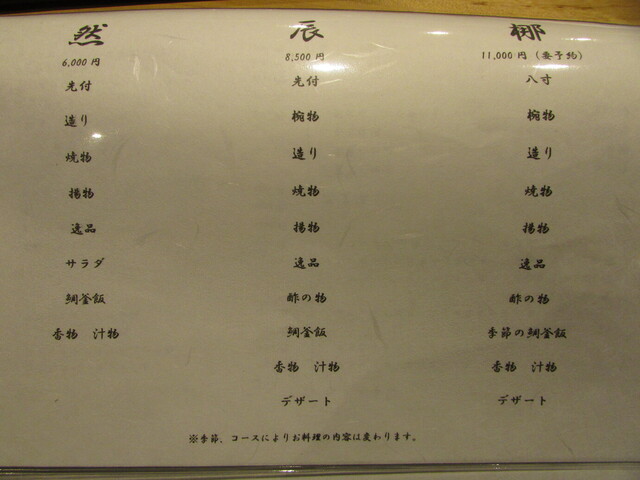 然
6,000 円
先付
造り
焼物
揚物
逸品
サラダ
鯛釜飯
香物 汁物
辰
8,500 円
先付
椀物
造り
焼物
揚物
逸品
酢の物
鯛釜飯
香物 汁物
デザート
梛
11,000 円（要予約）
八寸
椀物
造り
焼物
揚物
逸品
酢の物
季節の鯛釜飯
香物 汁物
デザート
※季節、コースによりお料理の内容は変わります。